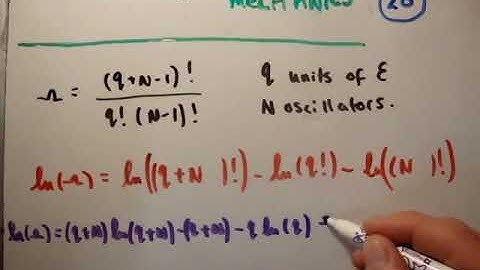 MECHANICS 20
Ω = (q+N-1)! / q! (N-1)!
q units of ε
N oscillators.
ln(Ω) = ln((q+N )!) - ln(q!) - ln((N )!)
ln(Ω) = (q+N) ln(q+N) - (q+N) - q ln(q) +